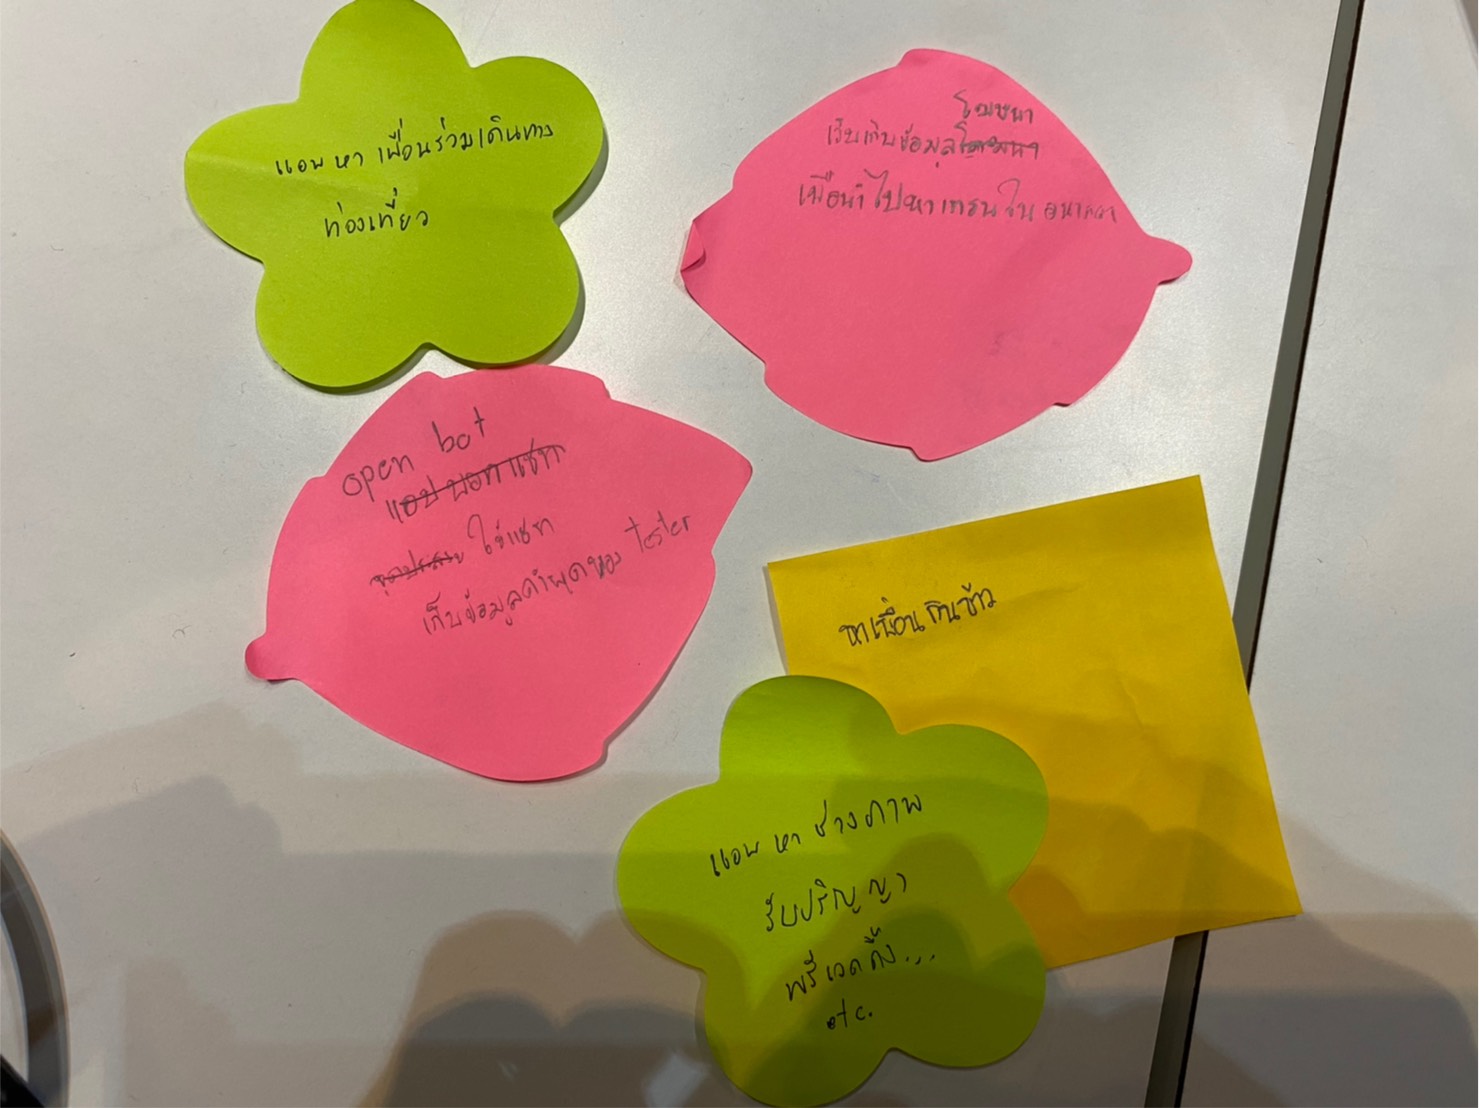 แอพ หา เพื่อนร่วมเดินทาง
ท่องเที่ยว
โฆษณา
เก็บข้อมูล
เพื่อนำไปหาเทรนใน อนาคต
open bot
แอป บอท แชท
ใช้แชท
เก็บข้อมูลคำพูดของ tester
หาเพื่อนกินข้าว
แอพ หา ช่างภาพ
รับปริญญา
พรีเวดดิ้ง...
etc.